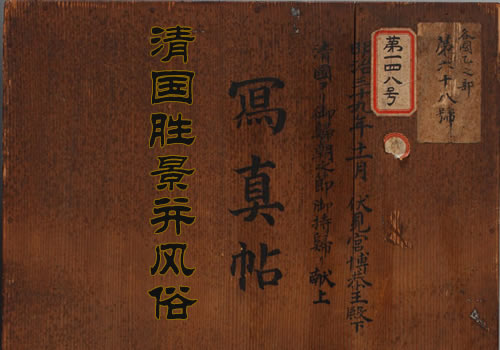 各國乙之部
第六十八號
第一四八号
明治三十九年十一月 伏見宮博恭王殿下
清國ヨリ御歸朝之節御持歸リ献上
冩真帖
清国胜景并风俗